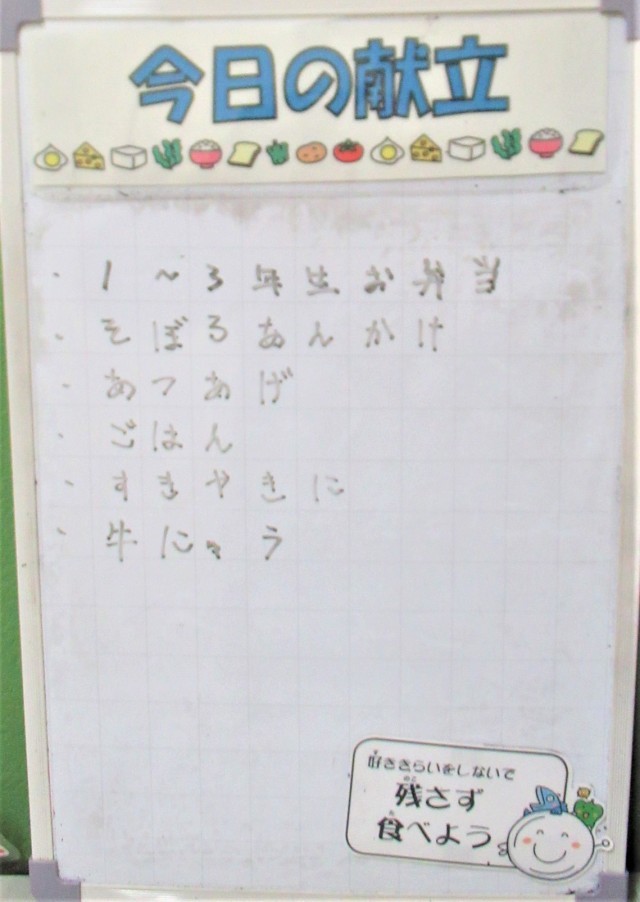 今日の献立
・1～3年生お弁当
・そぼろあんかけ
・あつあげ
・ごはん
・すきやきに
・牛にゅう
好ききらいをしないで
残さず
食べよう